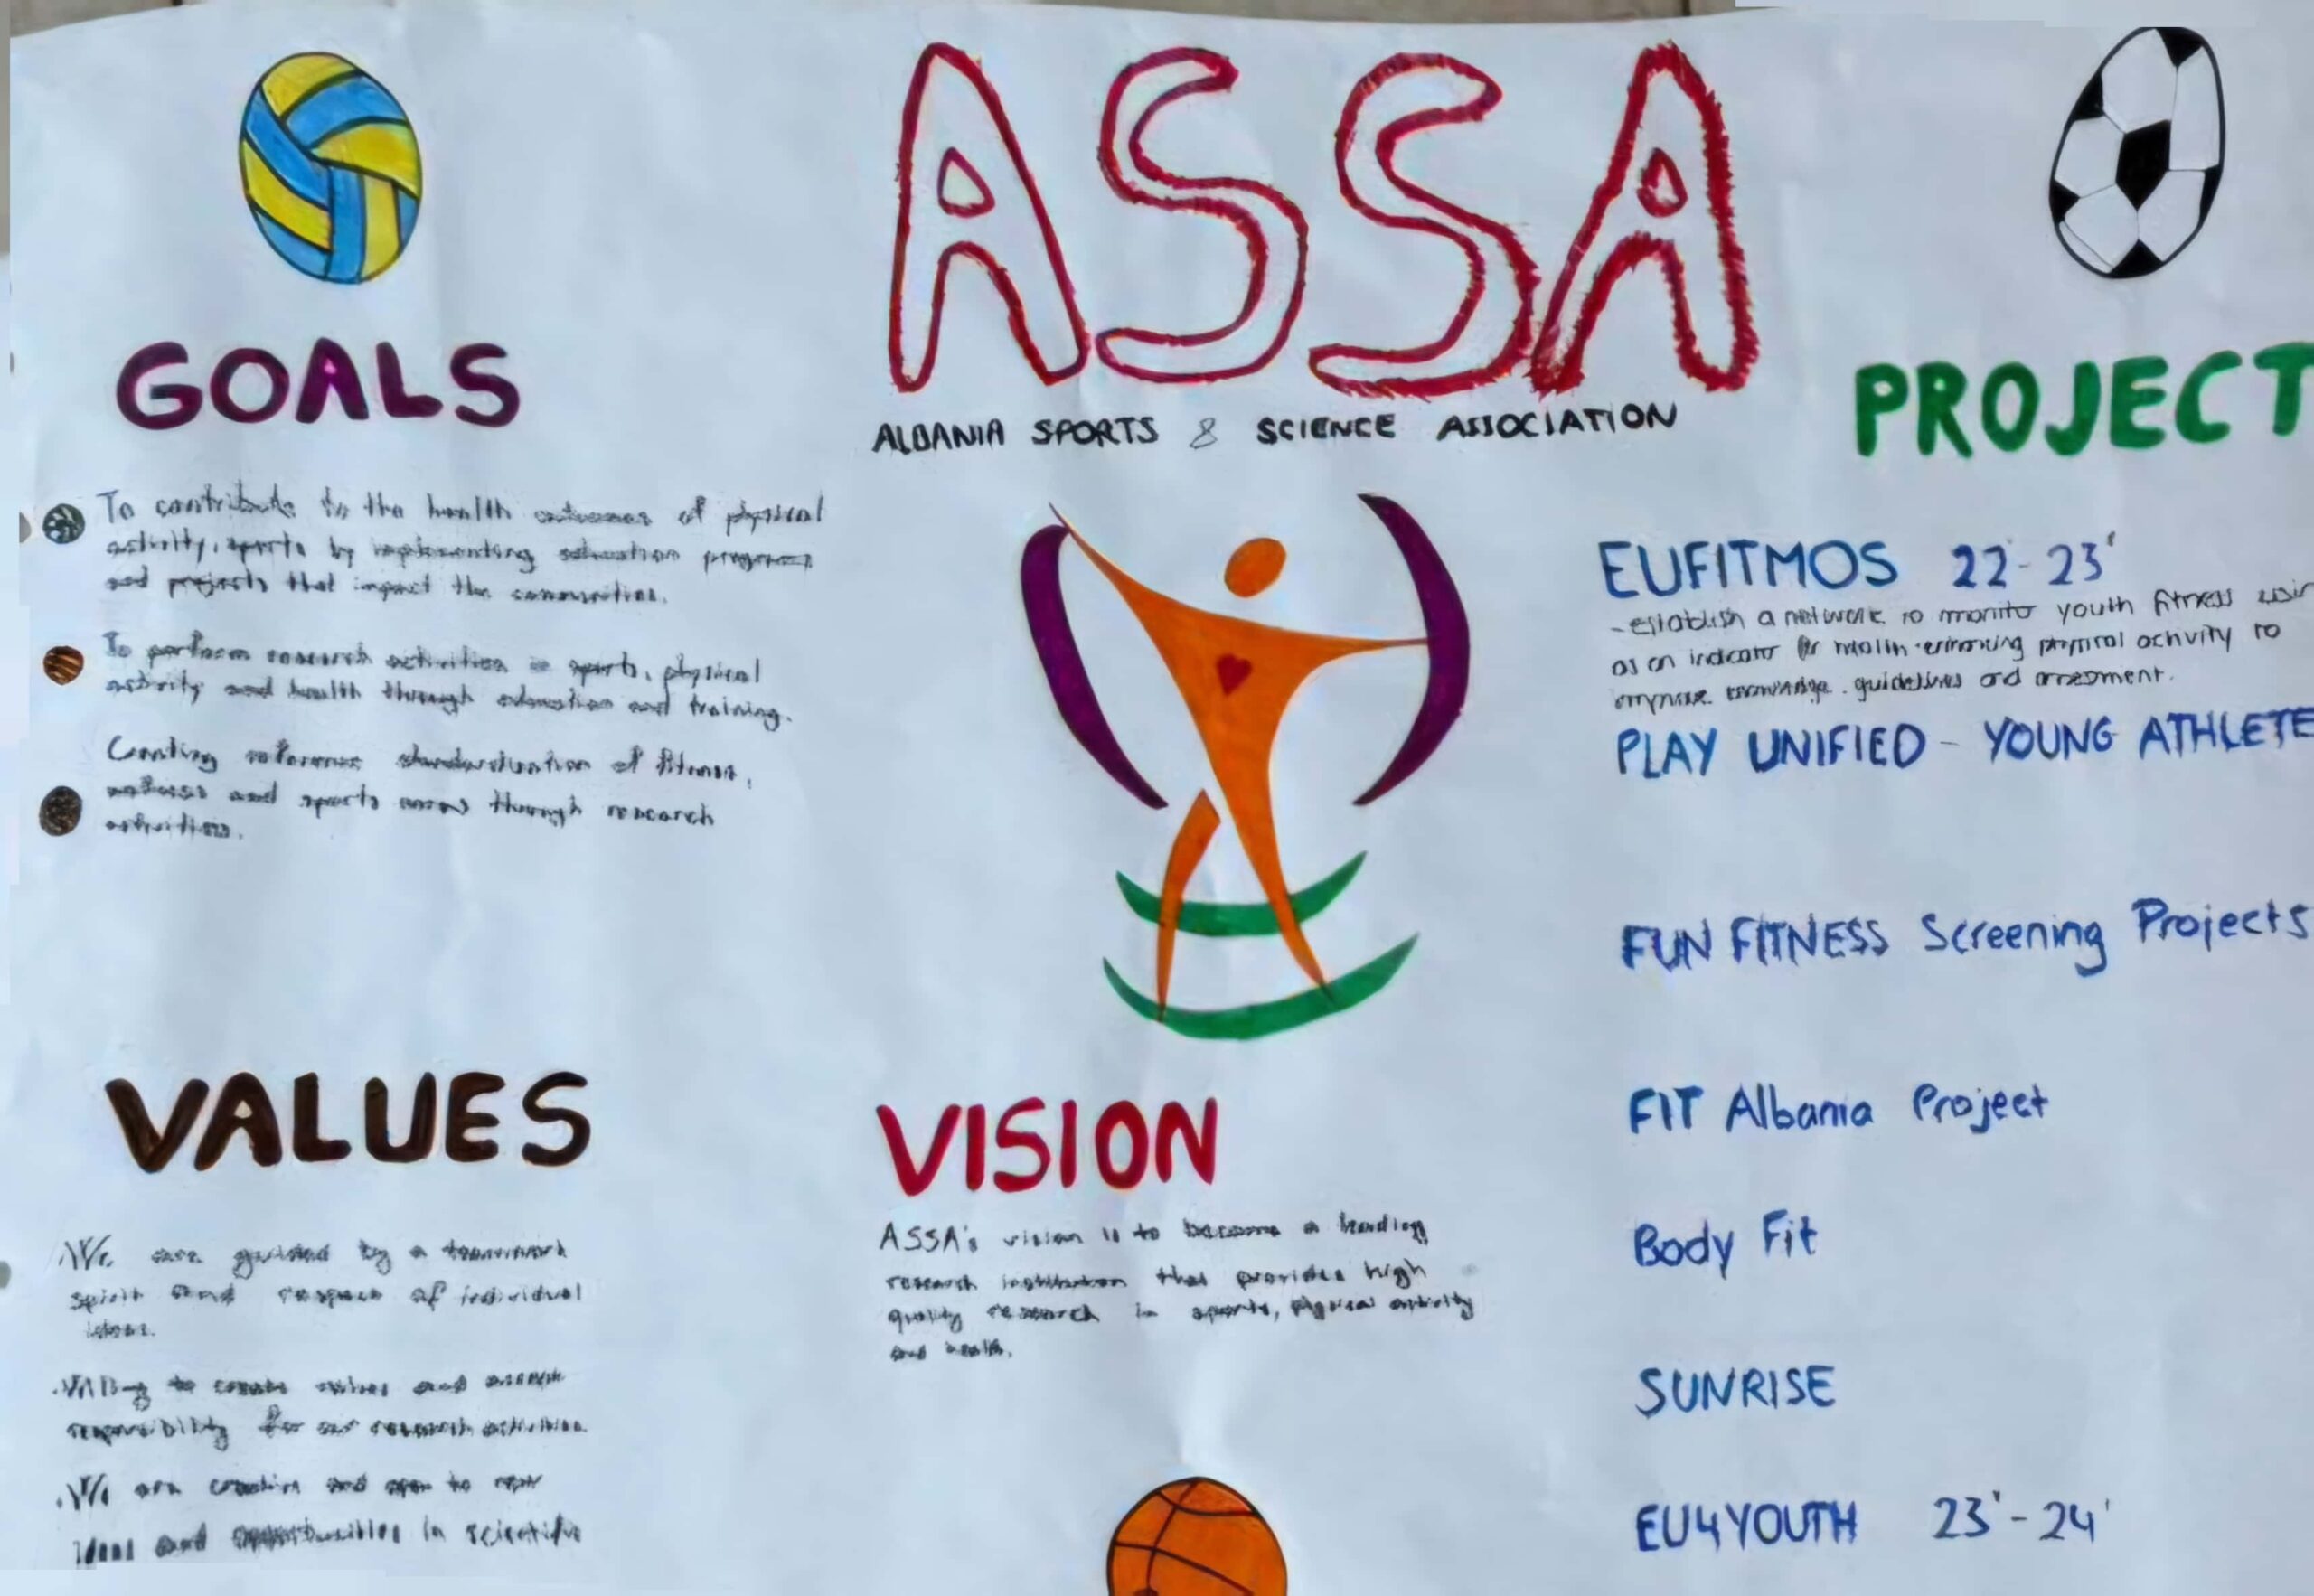 ASSA
ALBANIA SPORTS & SCIENCE ASSOCIATION
GOALS
To contribute to the health outcomes of physical
activity, sports by implementing education programs
and projects that impact the communities.
To perform research activities in sports, physical
activity and health through education and training.
Creating reference standardization of fitness,
and sports through research
activities.
VALUES
.We are guided by a teamwork
spirit and respect of individual
ideas.
.Willing to create values and
responsibility for our research activities.
.We are creative and open to new
ideas and opportunities in scientific
VISION
ASSA's vision is to become a leading
research institution that provides high
quality research in sports, physical activity
and health.
PROJECT
EUFITMOS 22'-23'
-establish a network to monitor youth fitness
as an indicator for health-enhancing physical activity to
improve knowledge, guidelines and assessment.
PLAY UNIFIED - YOUNG ATHLETE
FUN FITNESS Screening Projects
FIT Albania Project
Body Fit
SUNRISE
EU4YOUTH 23'-24'